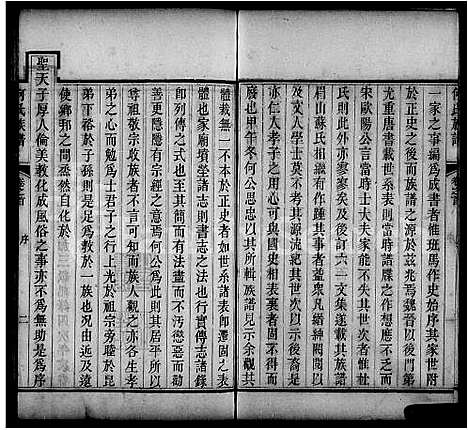 一家之事編爲成書者惟班馬作史始序其家世附
於正史之後而族譜之源於茲兆焉魏晉
尤重唐書載世系表則牒譜之存想應不乏而
宋歐陽公言當時士大夫家能不失其世次者惟杜
氏則此外亦寥寥及後訂六一文集遂載其族譜
眉山蘇氏相繼有作踵其事者蓋衆凡縉紳閥閱
及文人學士莫不考其源流紀其世次以示來茲一
亦仁人孝子之用心固如是其表裏者固不得而
廢也甲午冬何公思忠以其所輯族譜見示余觀其
體裁無一不本於正史者如世系諸表即遷固之表
體也家廟墳塋諸志則書志之法也行實傳志諸錄
即列傳之遺也統而系之有法盡而不汚懲惡而勸
善更隱隱有宗經之意焉何公爲教於其居平所以
尊祖敬宗收族者不言可知而族人觀之亦各生孝
弟之心而勉爲士君子之行上光於祖宗旁睦於昆
弟下裕於子孫則是足爲教於一族也况由近及遠
使鄉邦之間烝然自化於
聖天子厚人倫美教化成風俗之事亦不爲無助是爲序
何氏族譜
卷之首
序
二